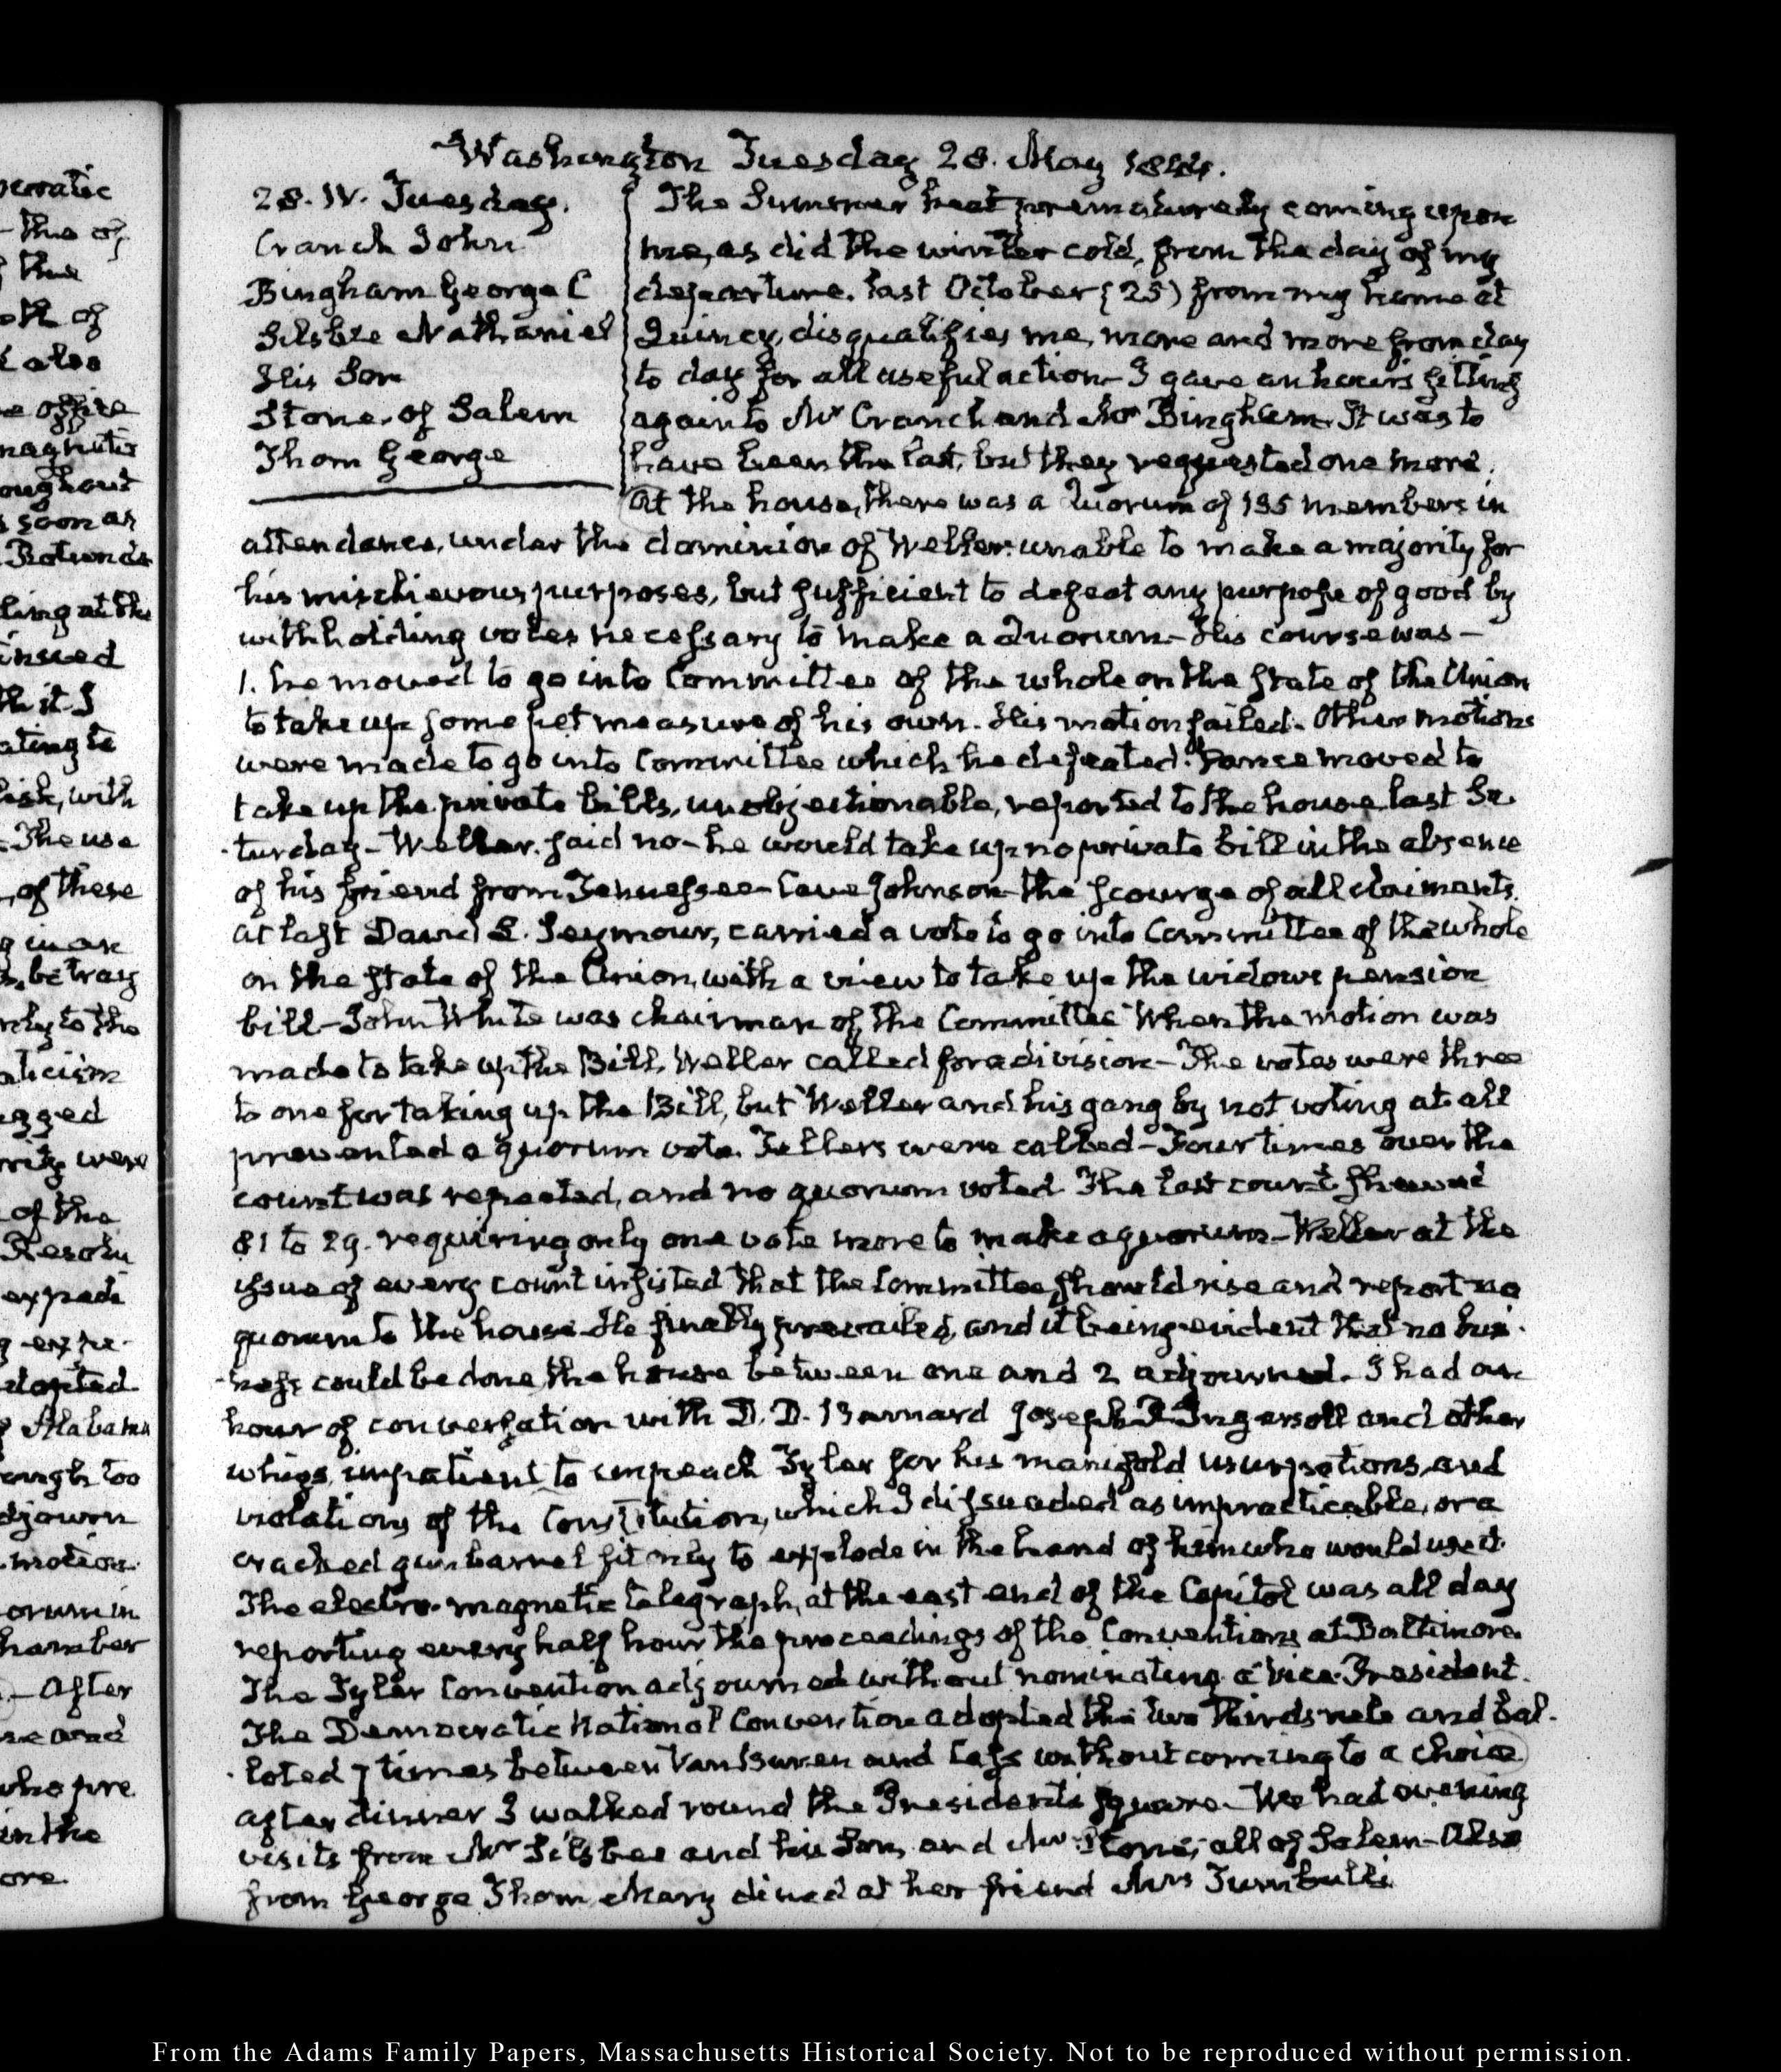 Washington Tuesday 28. May 1844.
28. IV. Tuesday.
Cranch John
Bingham George C
Silsbee Nathaniel
His Son
Stone, of Salem
Thom George
The Summer heat prematurely coming upon
me, as did the winter cold, from the day of my
departure, last October (25) from my home at
Quincy, disqualifies me, more and more from day
to day for all useful action— I gave an hour's sitting
again to Mr Cranch and Mr Bingham. It was to
have been the last, but they requested one more.
At the house, there was a Quorum of 135 members in
attendance, under the dominion of Weller: unable to make a majority for
his mischievous purposes, but sufficient to defeat any purpose of good by
withholding votes necessary to make a Quorum— His course was—
1. he moved to go into Committee of the whole on the state of the Union
to take up some pet measure of his own. His motion failed. Other motions
were made to go into Committee which he defeated. moved to
take up the private bills, unobjectionable, reported to the house last Sa-
turday— Weller said no— he would take up no private bill in the absence
of his friend from Tennessee— Cave Johnson— the scourge of all claimants.
At last David L. Seymour, carried a vote to go into Committee of the whole
on the state of the Union, with a view to take up the widows pension
bill— John White was chairman of the Committee When the motion was
made to take up the Bill, Weller called for a division— The votes were three
to one for taking up the Bill, but Weller and his gang by not voting at all
prevented a quorum vote. Tellers were called— Four times over the
count was repeated, and no quorum voted. The last count shewed
81 to 29. requiring only one vote more to make a quorum— Weller at the
issue of every count insisted that the Committee should rise and report no
quorum to the house. He finally prevailed, and it being evident that no busi-
ness could be done, the house between one and 2 adjourned. I had an
hour of conversation with D. D. Barnard Joseph R Ingersoll and other
whigs, impatient to impeach Tyler for his manifold usurpations, and
violations of the Constitution, which I dissuaded as impracticable, or a
cracked gun barrel fit only to explode in the hand of him who would use it.
The electro-magnetic telegraph, at the east end of the Capitol was all day
reporting every half hour the proceedings of the Conventions at Baltimore.
The Tyler Convention adjourned without nominating a Vice-President.
The Democratic National Convention adopted the two thirds rule and bal-
loted 7 times between Van Buren and Cass without coming to a choice
after dinner I walked round the President's Square— We had evening
visits from Mr Silsbee and his Son, and Mr Stone, all of Salem— Also
from George Thom, Mary dined at her friend Mrs Turnbull's.
From the Adams Family Papers, Massachusetts Historical Society. Not to be reproduced without permission.